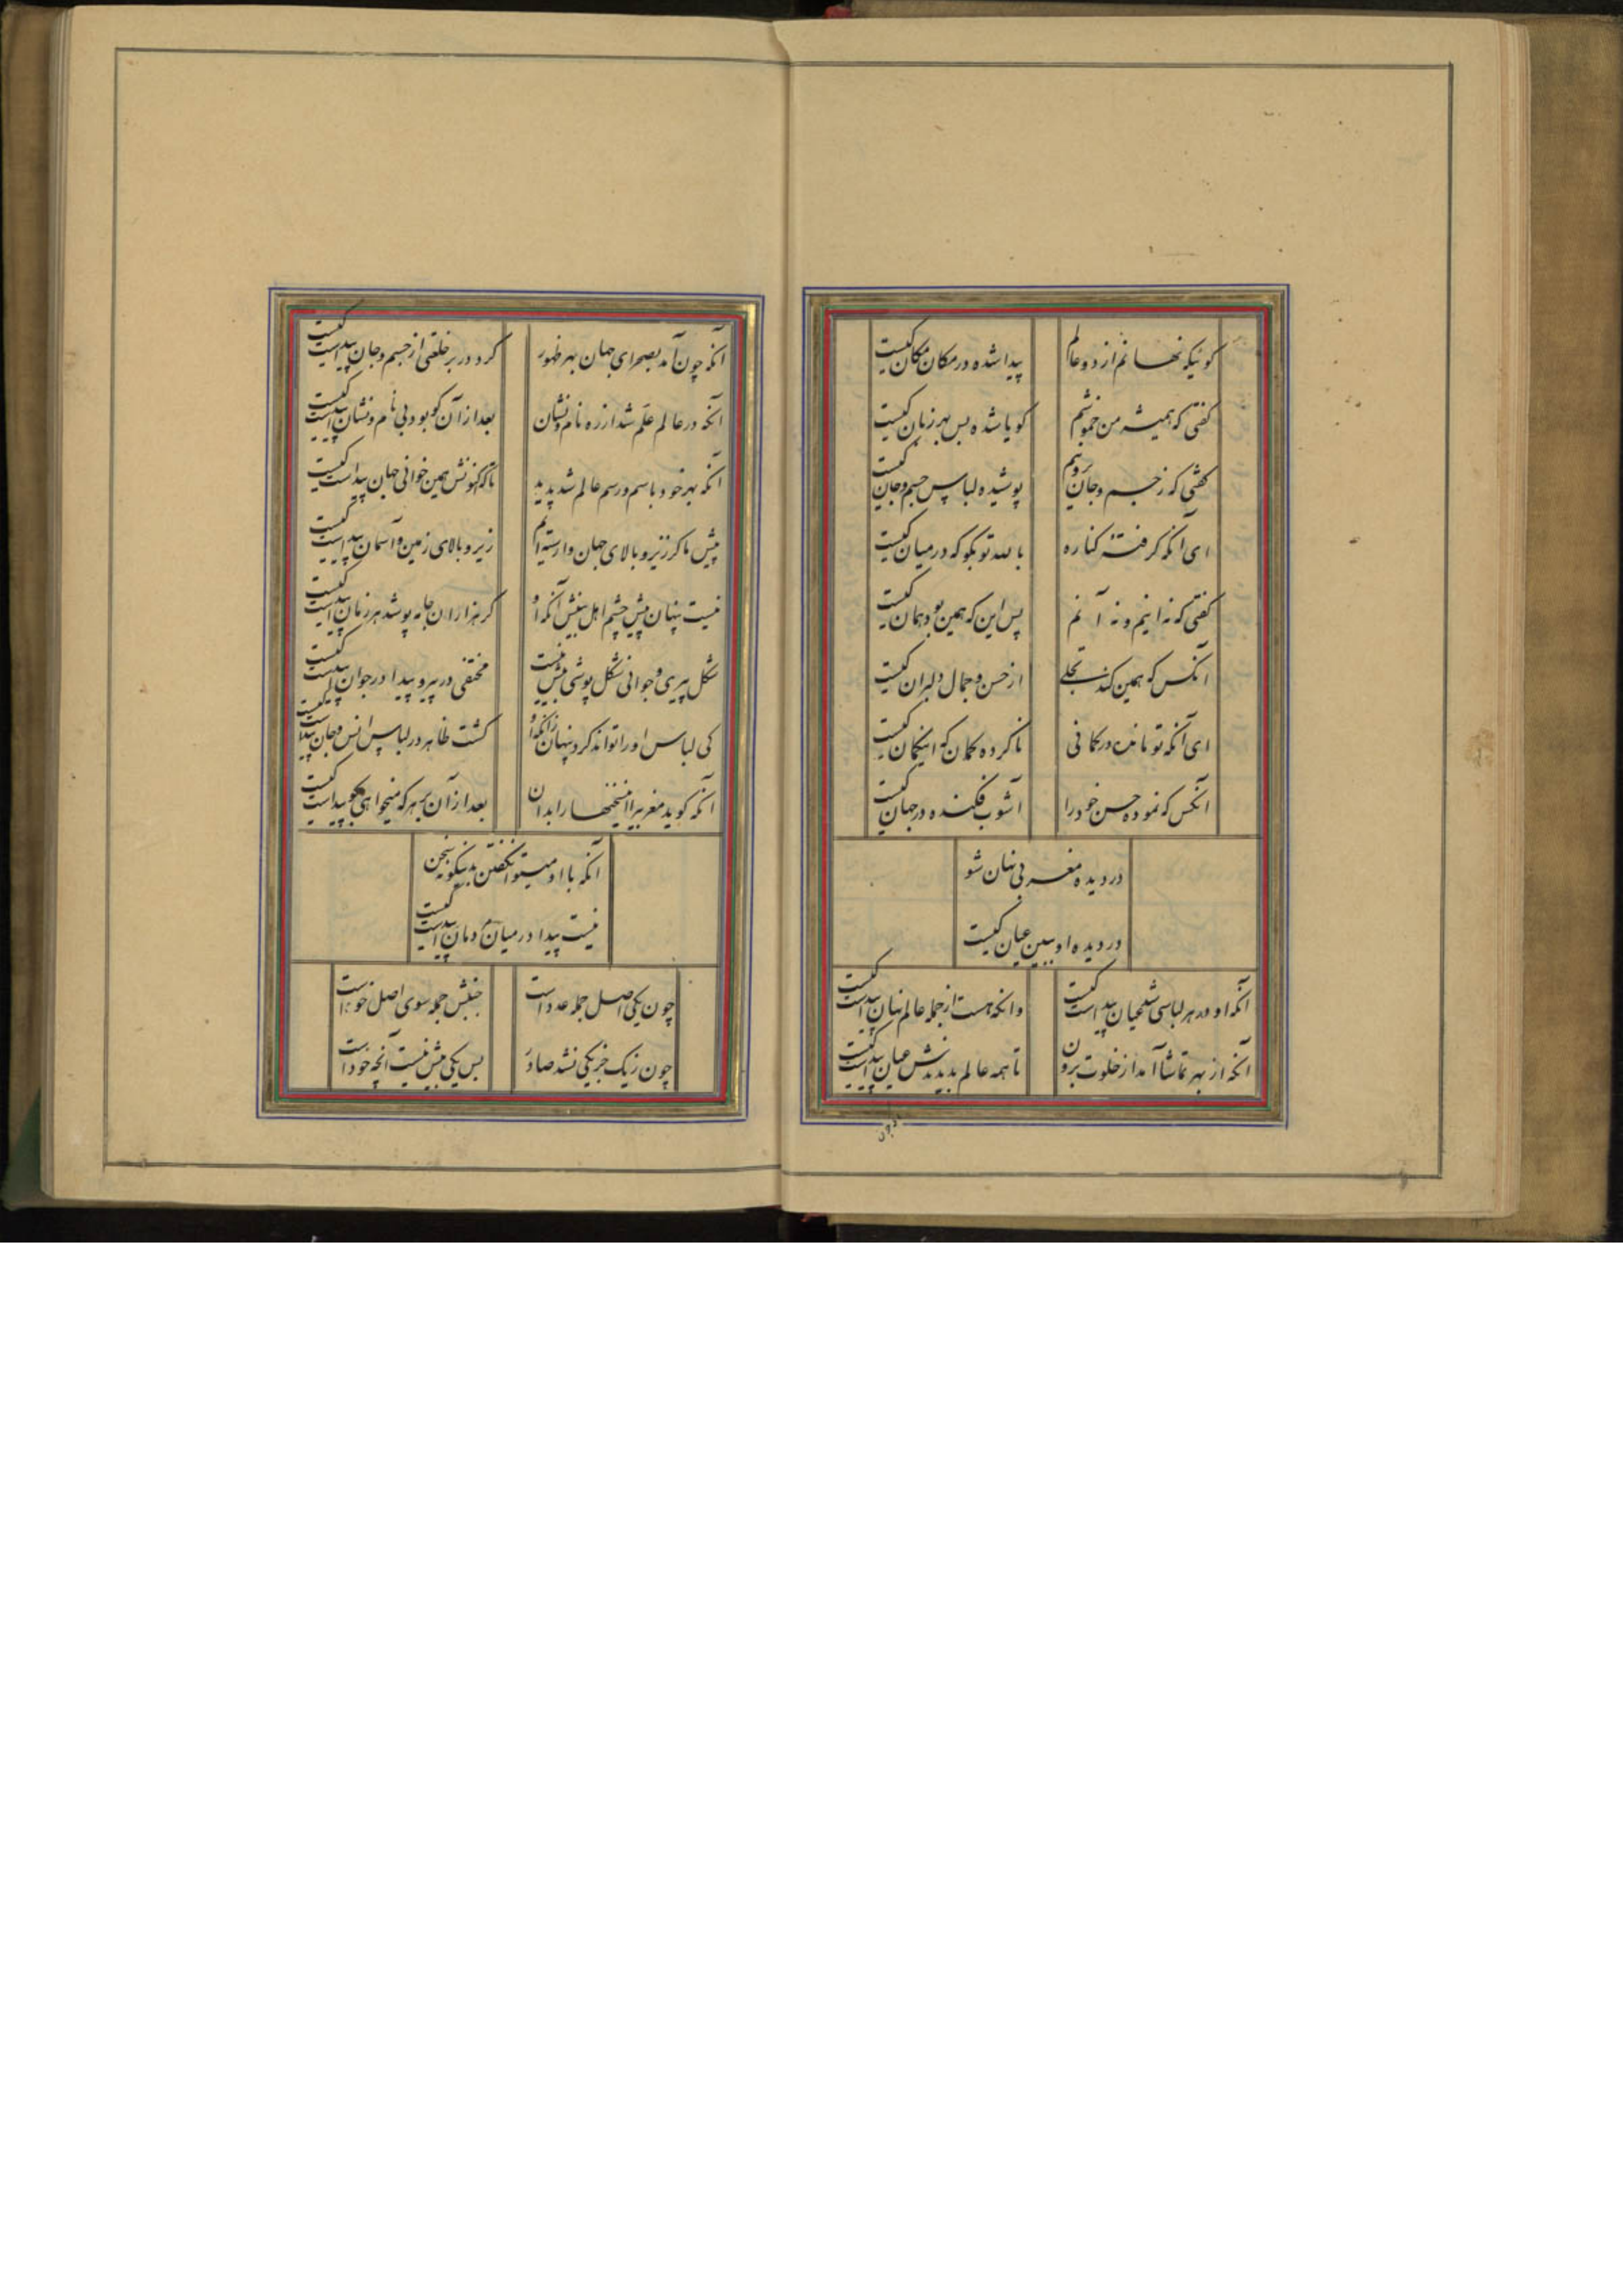 کوئیکه نهانم از دو عالم
پیدا شده در مکان مکان کیست
کفتی که همیشه من خموشم
کویا شده بس بهر زبان کیست
کفتی که ز جسم و جان برونم
پوشیده لباس جسم و جان کیست
ای آنکه کرفته کناره
بالله تو بکو که در میان کیست
کفتی که نه اینم و نه آنم
پس این که همین بود همان کیست
آنکس که همین کند تجلی
از حسن و جمال دلبران کیست
ای آنکه تو مانده در کمانی
ناکرده کمان که اینکمان کیست
آنکس که نموده حسن خود را
آشوب فکنده در جهان کیست
در دیده مغربی نهان شو
در دیده او ببین عیان کیست
آنکه او در هر لباسی شد عیان پیداست کیست
وانکه هست از جمله عالم نهان پیداست کیست
آنکه از بهر تماشا آمد از خلوت برون
تا همه عالم بدیدندش عیان پیداست کیست
آنکه چون آمد بصحرای جهان بهر ظهور
کرد در بر خلقتی از جسم و جان پیداست کیست
آنکه در عالم علم شد از ره نام و نشان
بعد از آن کو بود بی نام و نشان پیداست کیست
آنکه بهر خود باسم و رسم عالم شد پدید
تا که کنونش همین خوانی جهان پیداست کیست
پیش ما کز زیر و بالای جهان وارسته‌ایم
زیر و بالای زمین و آسمان پیداست کیست
نیست پنهان پیش چشم اهل بینش آنکه او
کر هزاران جامه پوشد هر زمان پیداست کیست
شکل پیری و جوانی شکل پوشی بیش نیست
مختفی در پیر و پیدا در جوان پیداست کیست
کی لباس او را تواند کرد پنهان زانکه او
کشت ظاهر در لباس انس و جان پیداست کیست
آنکه کوید مغربیرا اینسخنها را بدان
بعد از آن بهر که میخواهی بکو پیداست کیست
آنکه با او میتوان کفتن بدینکونه سخن
نیست پیدا در میان مردمان پیداست کیست
چون یکی اصل جمله عدد است
جنبش جمله سوی اصل خود است
چون ز یک جز یکی نشد صادر
بس یکی بیش نیست آنچه خود است